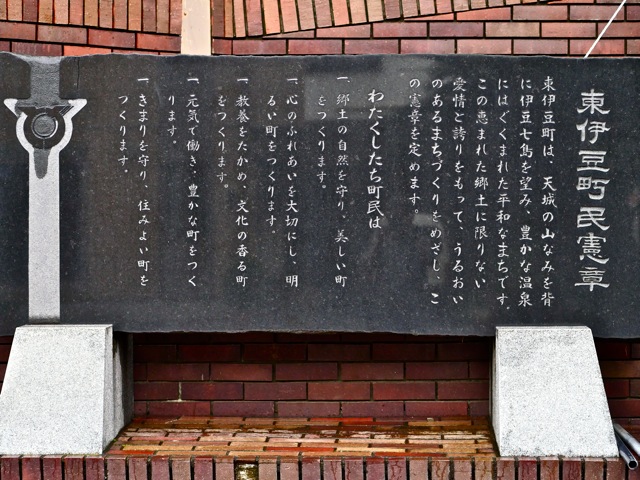 東伊豆町民憲章
東伊豆町は、天城の山なみを背
に伊豆七島を望み、豊かな温泉
にはぐくまれた平和なまちです。
この恵まれた郷土に限りない
愛情と誇りをもって、うるおい
のあるまちづくりをめざし、こ
の憲章を定めます。
わたくしたち町民は
一、郷土の自然を守り、美しい町
をつくります。
一、心のふれあいを大切にし、明
るい町をつくります。
一、教養をたかめ、文化の香る町
をつくります。
一、元気で働き、豊かな町をつく
ります。
一、きまりを守り、住みよい町を
つくります。